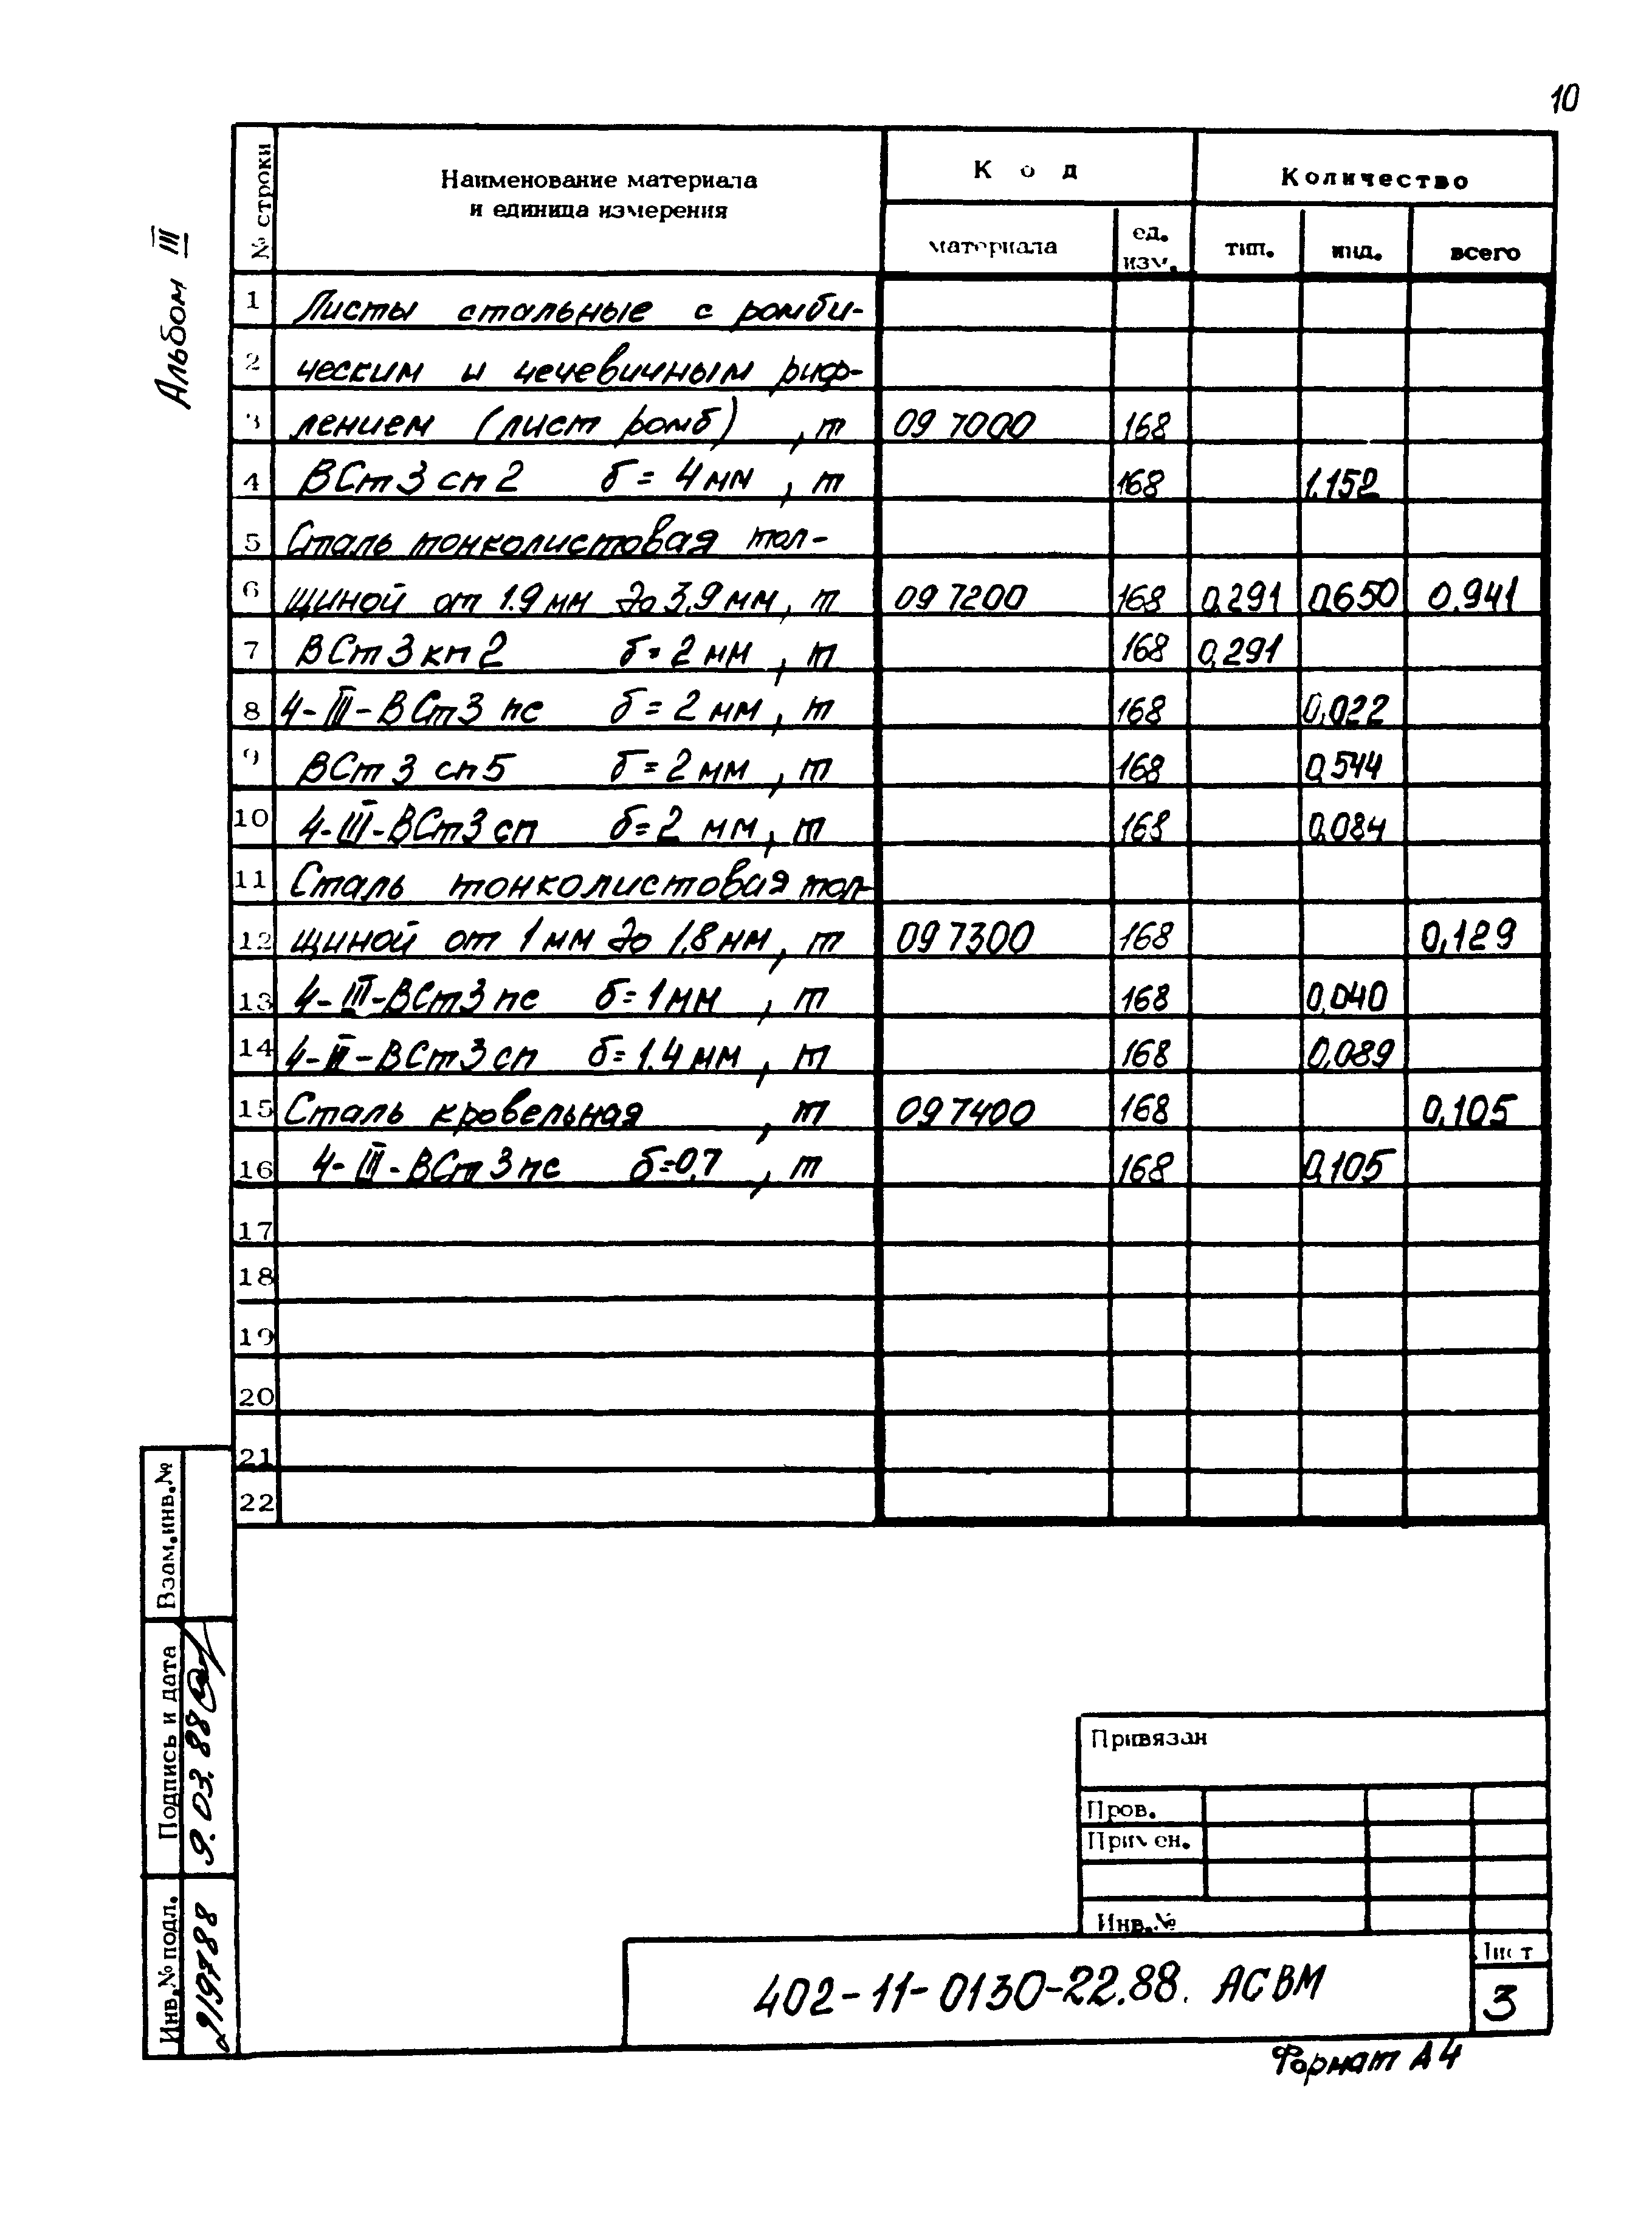 10
Альбом III
№ строки
Наименование материала
и единица измерения
Код
Количество
материала
ед.
изм.
тип.
инд.
всего
1 Листы стальные с ромби-
2 ческим и чечевичным риф-
3 лением (лист ромб) , т 09 7000 168
4 ВСт3сп2 б=4мм , т 168 1.152
5 Сталь тонколистовая тол-
6 щиной от 1.9мм до 3,9мм, т 09 7200 168 0,291 0,650 0,941
7 ВСт3кп2 б=2мм , т 168 0,291
8 4-III-ВСт3пс б=2мм , т 168 0,022
9 ВСт3 сп5 б=2мм , т 168 0,544
10 4-III-ВСт3сп б=2 мм, т 168 0,084
11 Сталь тонколистовая тол-
12 щиной от 1мм до 1.8мм, т 09 7300 168 0,129
13 4-III-ВСт3пс б=1мм , т 168 0,040
14 4-III-ВСт3сп б=1.4мм , т 168 0,089
15 Сталь кровельная , т 09 7400 168 0,105
16 4-III-ВСт3пс б=0,7 , т 168 0,105
17
18
19
20
21
22
Взам.инв.№
Подпись и дата
9.03.88
Инв.№ подл.
Привязан
Пров.
Примен.
Инв.№
402-11-0130-22.88. АСВМ
Лист
3
Формат А4